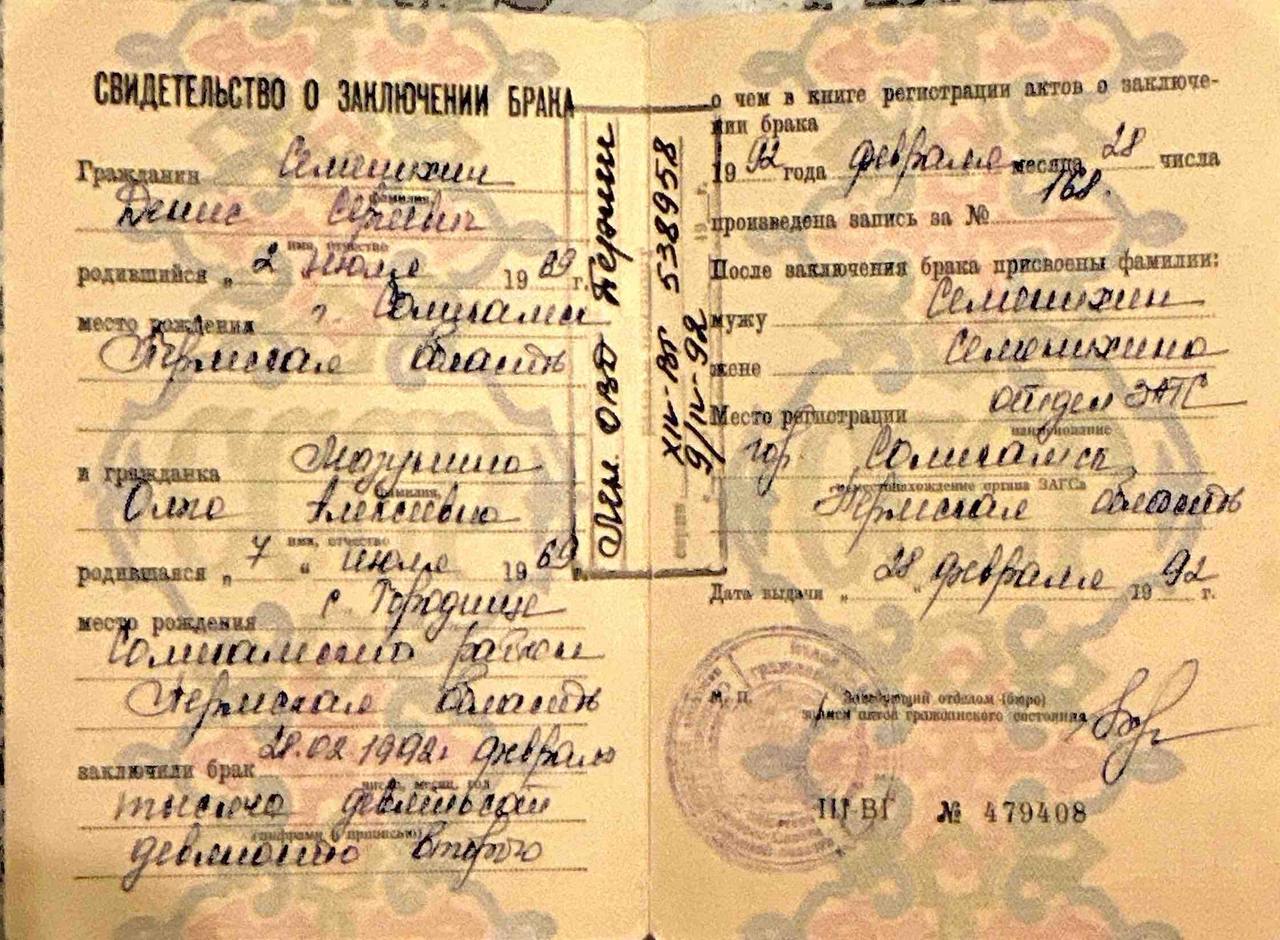 СВИДЕТЕЛЬСТВО О ЗАКЛЮЧЕНИИ БРАКА
Гражданин Семенихин
фамилия,
Денис Сергеевич
имя, отчество
родившийся „ 2 июля 19 69 г.
место рождения г. Соликамск
Пермская область
и гражданка Мазунина
фамилия,
Ольга Алексеевна
имя, отчество
родившаяся „ 7 “ июля 19 69 г.
место рождения с. Городище
Соликамского район
Пермская область
заключили брак 28.02.1992г. февраля
число, месяц, год
тысяча девятьсот
(цифрами и прописью)
девяносто второго
ОВД
XIV-ВГ 538958
9/IV-92
19 г.
о чем в книге регистрации актов о заключе-
нии брака
19 92 года февраля месяца 28 числа
произведена запись за № 168.
После заключения брака присвоены фамилии:
мужу Семенихин
жене Семенихина
Место регистрации отдел ЗАГС
наименование
гор. Соликамск
местонахождение органа ЗАГСа
Пермская область
Дата выдачи „ 28 “ февраля 19 92 г.
М. П.
Заведующий отделом (бюро)
записи актов гражданского состояния
III-ВГ № 479408